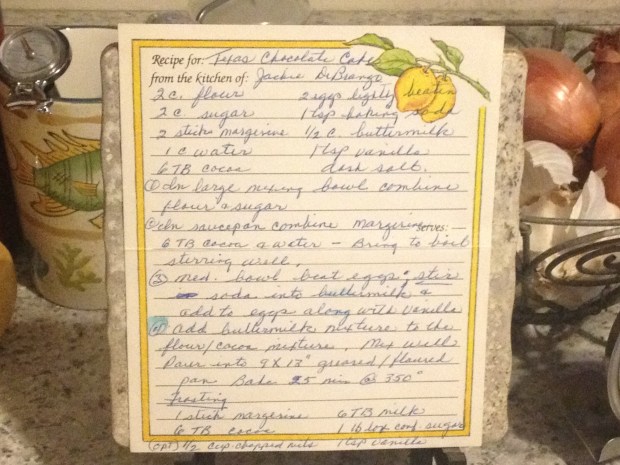 Recipe for: Texas Chocolate Cake
from the kitchen of: Jackie DeBrango
2 c. flour 2 eggs lightly beaten
2 c. sugar 1 tsp baking soda
2 sticks margerine 1/2 c. buttermilk
1 c water 1 tsp vanilla
6 TB cocoa dash salt.
① In large mixing bowl combine
flour & sugar
② In saucepan combine margerine serves:
6 TB cocoa & water - Bring to boil
stirring well.
③ Med. bowl beat eggs; stir
soda into buttermilk &
add to eggs along with vanilla
④ add buttermilk mixture to the
flour/cocoa mixture. Mix well
Pour into 9 X 13" greased/floured
pan Bake 25 min @ 350°
Frosting
1 stick margerine 6 TB milk
6 TB cocoa 1 lb box conf. sugar
(opt) 1/2 cup chopped nuts 1 tsp vanilla